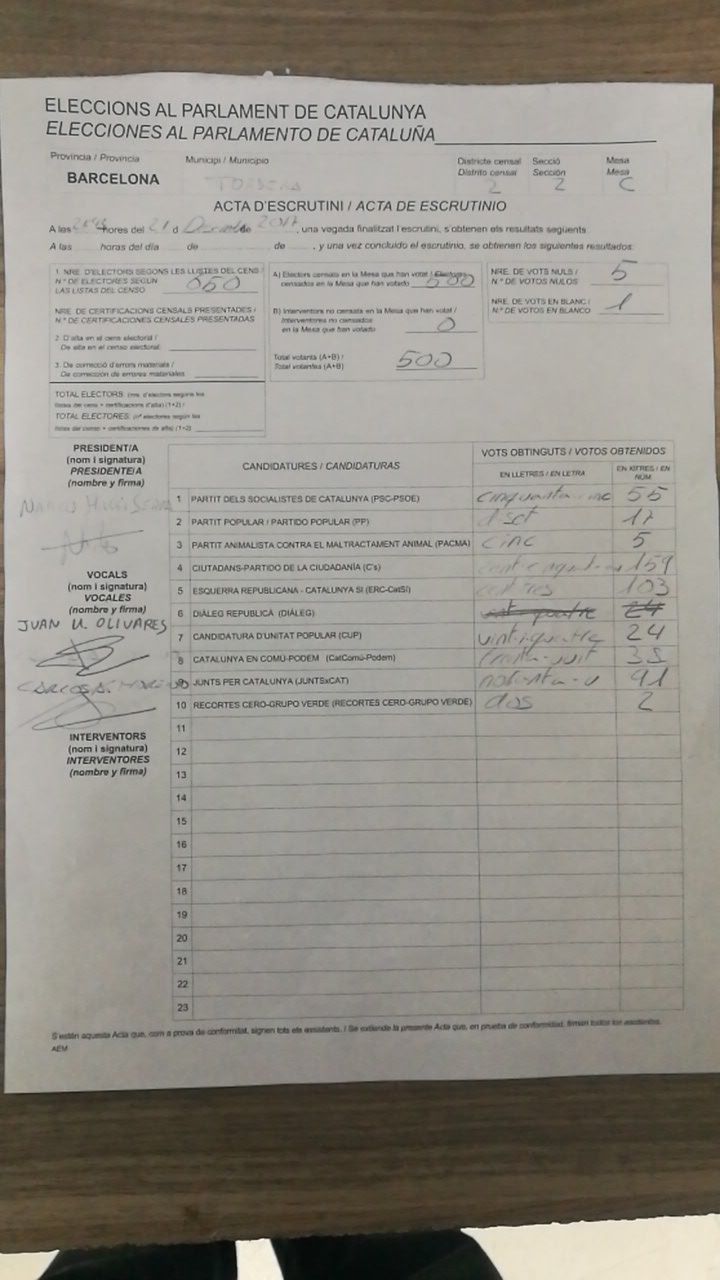 ELECCIONS AL PARLAMENT DE CATALUNYA
ELECCIONES AL PARLAMENTO DE CATALUÑA
Província / Provincia Municipi / Municipio Districte censal Secció Mesa
Distrito censal Sección Mesa
BARCELONA TORDERA 2 2 C
ACTA D'ESCRUTINI / ACTA DE ESCRUTINIO
A les hores del 21 d de 2017, una vegada finalitzat l'escrutini, s'obtenen els resultats següents
A las horas del día de de , y una vez concluido el escrutinio, se obtienen los siguientes resultados:
1. NRE. D'ELECTORS SEGONS LES LLISTES DEL CENS /
N.º DE ELECTORES SEGÚN
LAS LISTAS DEL CENSO
NRE. DE CERTIFICACIONS CENSALS PRESENTADES /
N.º DE CERTIFICACIONES CENSALES PRESENTADAS
2. D'alta en el cens electoral /
De alta en el censo electoral:
3. De correcció d'errors materials /
De corrección de errores materiales
TOTAL ELECTORS: (nre. d'electors segons les
llistes del cens + certificacions d'alta) (1+2) /
TOTAL ELECTORES: (nº electores según las
listas del censo + certificaciones de alta) (1+2)
A) Electors censats en la Mesa que han votat / Electores
censados en la Mesa que han votado 500
B) Interventors no censats en la Mesa que han votat /
Interventores no censados
en la Mesa que han votado 0
Total votants (A+B) /
Total votantes (A+B) 500
NRE. DE VOTS NULS /
N.º DE VOTOS NULOS 5
NRE. DE VOTS EN BLANC /
N.º DE VOTOS EN BLANCO 1
PRESIDENT/A
(nom i signatura)
PRESIDENTE/A
(nombre y firma)
VOCALS
(nom i signatura)
VOCALES
(nombre y firma)
JUAN U. OLIVARES
CARLOS A.
INTERVENTORS
(nom i signatura)
INTERVENTORES
(nombre y firma)
CANDIDATURES / CANDIDATURAS VOTS OBTINGUTS / VOTOS OBTENIDOS
EN LLETRES / EN LETRA EN XIFRES / EN NÚM.
1 PARTIT DELS SOCIALISTES DE CATALUNYA (PSC-PSOE) 55
2 PARTIT POPULAR / PARTIDO POPULAR (PP) 17
3 PARTIT ANIMALISTA CONTRA EL MALTRACTAMENT ANIMAL (PACMA) cinc 5
4 CIUTADANS-PARTIDO DE LA CIUDADANÍA (C's) 159
5 ESQUERRA REPUBLICANA - CATALUNYA SÍ (ERC-CatSÍ) cent tres 103
6 DIÀLEG REPUBLICÀ (DIÀLEG) 24
7 CANDIDATURA D'UNITAT POPULAR (CUP) vint-i-quatre 24
8 CATALUNYA EN COMÚ-PODEM (CatComú-Podem)
9 JUNTS PER CATALUNYA (JUNTSxCAT) 91
10 RECORTES CERO-GRUPO VERDE (RECORTES CERO-GRUPO VERDE) dos 2
11
12
13
14
15
16
17
18
19
20
21
22
23
S'estén aquesta Acta que, com a prova de conformitat, signen tots els assistents. / Se extiende la presente Acta que, en prueba de conformidad, firman todos los asistentes.
AEM